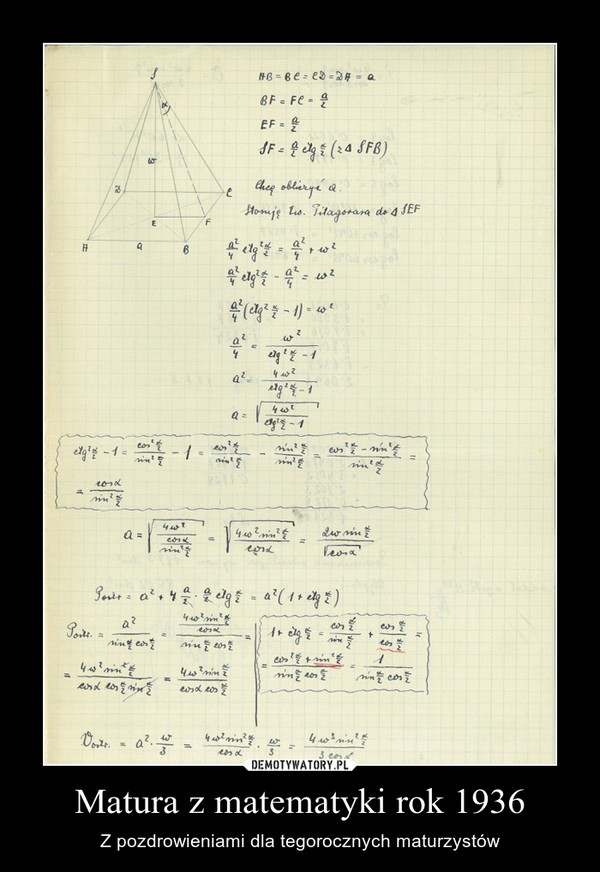 S
α
w
D
C
E
F
A
a
B
AB = BC = CD = DA = a
BF = FC = a/2
EF = a/2
SF = a/2 ctg α/2 (z Δ SFB)
Chcę obliczyć a.
Stosuję tw. Pitagorasa do Δ SEF
a²/4 ctg² α/2 = a²/4 + w²
a²/4 ctg² α/2 - a²/4 = w²
a²/4 (ctg² α/2 - 1) = w²
a²/4 = w² / (ctg² α/2 - 1)
a² = 4w² / (ctg² α/2 - 1)
a = √(4w² / (ctg² α/2 - 1))
ctg² α/2 - 1 = cos² α/2 / sin² α/2 - 1 = cos² α/2 / sin² α/2 - sin² α/2 / sin² α/2 = (cos² α/2 - sin² α/2) / sin² α/2 =
= cos α / sin² α/2
a = √(4w² / (cos α / sin² α/2)) = √(4w² sin² α/2 / cos α) = 2w sin α/2 / √cos α
Postr. = a² + 4 a/2 · a/2 ctg α/2 = a² (1 + ctg α/2)
Postr. = a² / (sin α/2 cos α/2) = (4w² sin² α/2 / cos α) / (sin α/2 cos α/2) =
= 4w² sin² α/2 / (cos α cos α/2 sin α/2) = 4w² sin α/2 / (cos α cos α/2)
1 + ctg α/2 = cos α/2 / sin α/2 + cos α/2 / cos α/2 =
= (cos² α/2 + sin² α/2) / (sin α/2 cos α/2) = 1 / (sin α/2 cos α/2)
Vostr. = a² · w/3 = 4w² sin² α/2 / cos α · w/3 = 4w³ sin² α/2 / 3 cos α
DEMOTYWATORY.PL
Matura z matematyki rok 1936
Z pozdrowieniami dla tegorocznych maturzystów